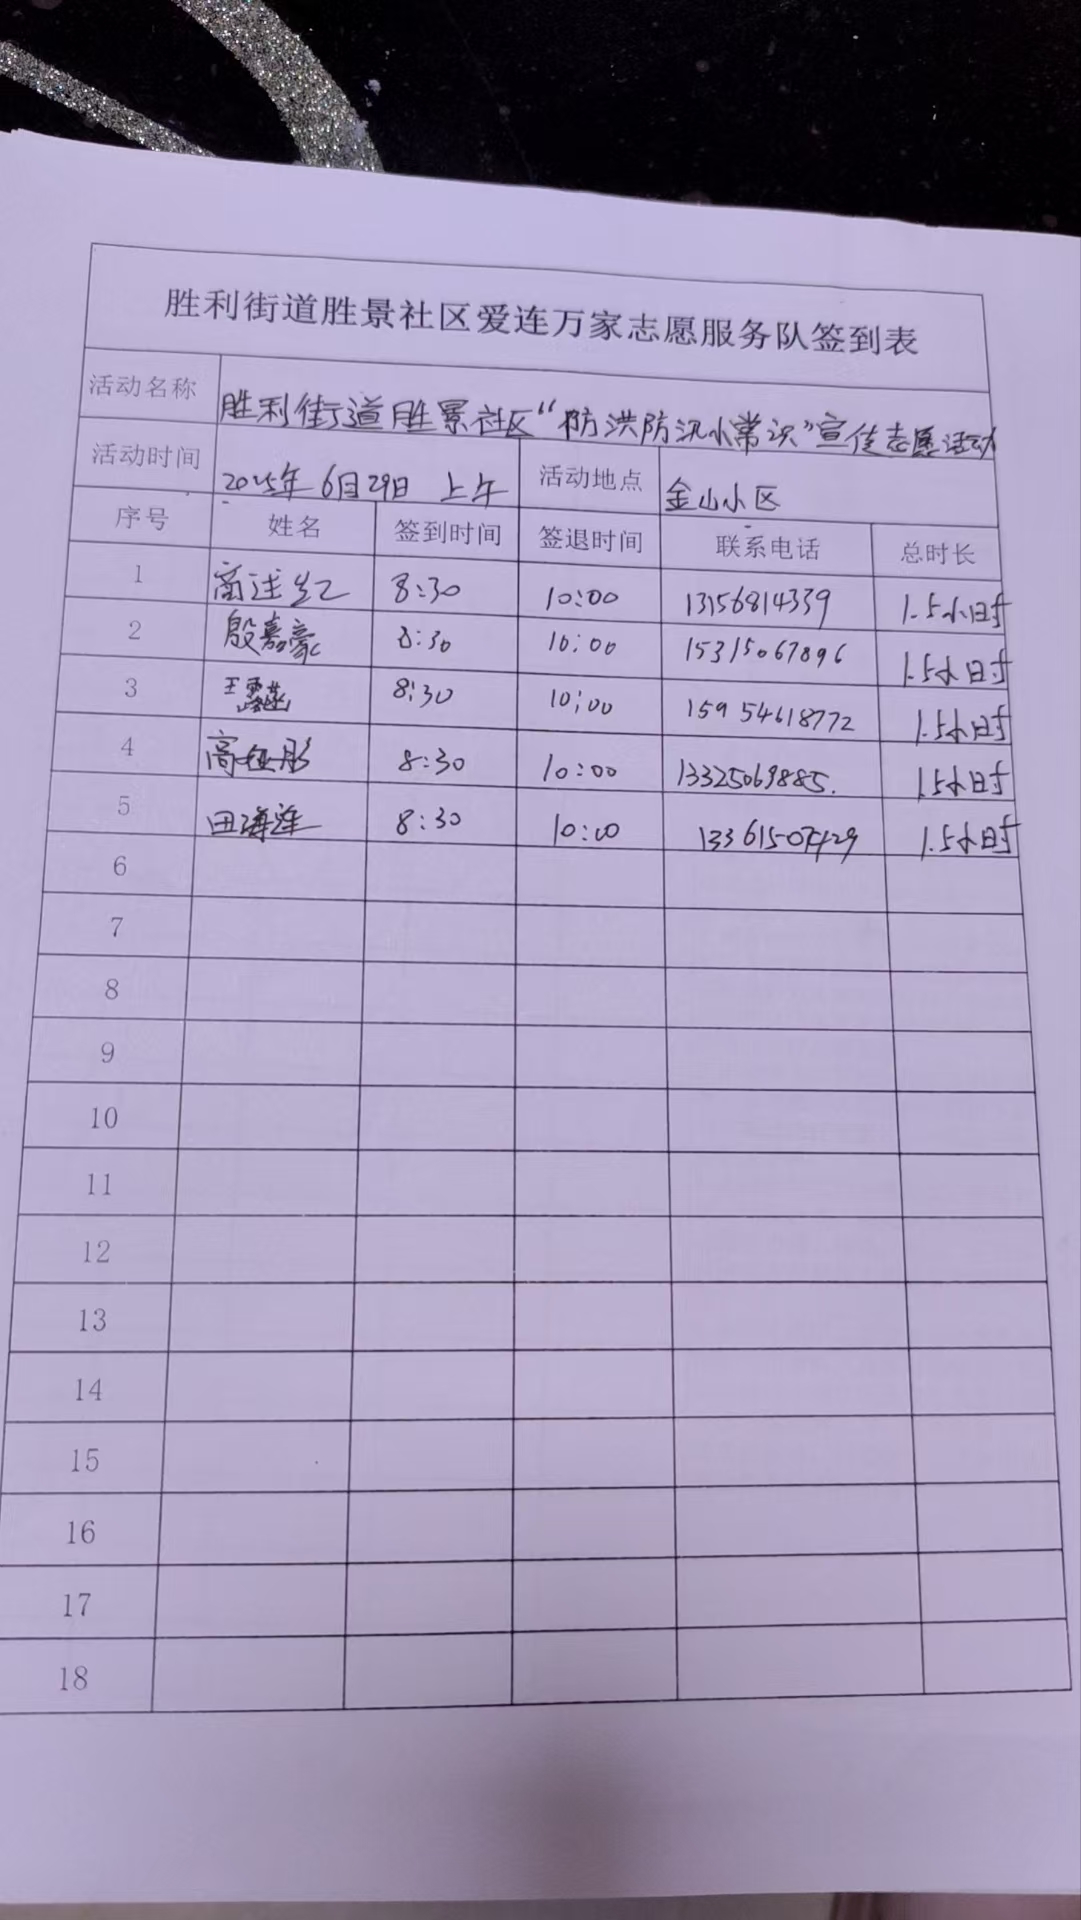 胜利街道胜景社区爱连万家志愿服务队签到表
活动名称 胜利街道胜景社区“防洪防汛小常识”宣传志愿活动
活动时间 2025年6月29日 上午 活动地点 金山小区
序号 姓名 签到时间 签退时间 联系电话 总时长
1 8:30 10:00 13156814339 1.5小时
2 殷嘉豪 8:30 10:00 15315067896 1.5小时
3 王 8:30 10:00 15954618772 1.5小时
4 高 8:30 10:00 13325069885. 1.5小时
5 田海莲 8:30 10:00 13361507429 1.5小时
6
7
8
9
10
11
12
13
14
15
16
17
18